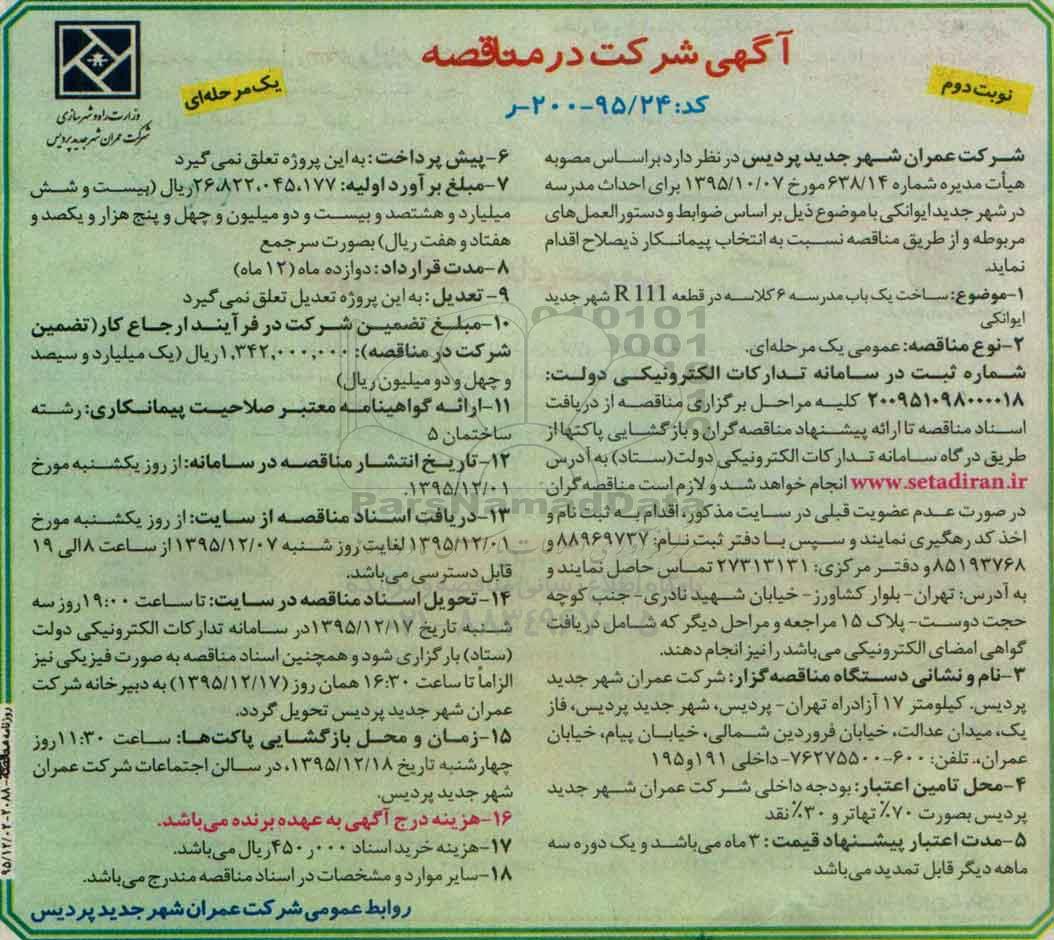 آگهی شرکت در مناقصه
نوبت دوم
یک مرحله‌ای
کد: ۹۵/۲۴-۲۰۰-ر
وزارت راه و شهرسازی
شرکت عمران شهر جدید پردیس
شرکت عمران شهر جدید پردیس در نظر دارد براساس مصوبه
هیأت مدیره شماره ۶۳۸/۱۴ مورخ ۱۳۹۵/۱۰/۰۷ برای احداث مدرسه
در شهر جدید ایوانکی با موضوع ذیل بر اساس ضوابط و دستورالعمل‌های
مربوطه و از طریق مناقصه نسبت به انتخاب پیمانکار ذیصلاح اقدام
نماید.
۱-موضوع: ساخت یک باب مدرسه ۶ کلاسه در قطعه R 111 شهر جدید
ایوانکی
۲-نوع مناقصه: عمومی یک مرحله‌ای.
شماره ثبت در سامانه تدارکات الکترونیکی دولت:
۲۰۰۹۵۱۰۹۸۰۰۰۰۱۸ کلیه مراحل برگزاری مناقصه از دریافت
اسناد مناقصه تا ارائه پیشنهاد مناقصه گران و بازگشایی پاکتها از
طریق درگاه سامانه تدارکات الکترونیکی دولت(ستاد) به آدرس
www.setadiran.ir انجام خواهد شد و لازم است مناقصه گران
در صورت عدم عضویت قبلی در سایت مذکور، اقدام به ثبت نام و
اخذ کد رهگیری نمایند و سپس با دفتر ثبت نام: ۸۸۹۶۹۷۳۷ و
۸۵۱۹۳۷۶۸ و دفتر مرکزی: ۲۷۳۱۳۱۳۱ تماس حاصل نمایند و
به آدرس: تهران- بلوار کشاورز- خیابان شهید نادری- جنب کوچه
حجت دوست- پلاک ۱۵ مراجعه و مراحل دیگر که شامل دریافت
گواهی امضای الکترونیکی می‌باشد را نیز انجام دهند.
۳-نام و نشانی دستگاه مناقصه گزار: شرکت عمران شهر جدید
پردیس. کیلومتر ۱۷ آزادراه تهران- پردیس، شهر جدید پردیس، فاز
یک، میدان عدالت، خیابان فروردین شمالی، خیابان پیام، خیابان
عمران،. تلفن: ۶۰۰-۷۶۲۷۵۵۰۰- داخلی ۱۹۱ و ۱۹۵
۴-محل تامین اعتبار: بودجه داخلی شرکت عمران شهر جدید
پردیس بصورت ۷۰٪ تهاتر و ۳۰٪ نقد
۵-مدت اعتبار پیشنهاد قیمت: ۳ ماه می‌باشد و یک دوره سه
ماهه دیگر قابل تمدید می‌باشد
۶-پیش پرداخت: به این پروژه تعلق نمی گیرد
۷-مبلغ برآورد اولیه: ۲۶،۸۲۲،۰۴۵،۱۷۷ریال (بیست و شش
میلیارد و هشتصد و بیست و دو میلیون و چهل و پنج هزار و یکصد و
هفتاد و هفت ریال) بصورت سرجمع
۸-مدت قرارداد: دوازده ماه (۱۲ ماه)
۹- تعدیل: به این پروژه تعدیل تعلق نمی گیرد
۱۰-مبلغ تضمین شرکت در فرآیند ارجاع کار(تضمین
شرکت در مناقصه): ۱,۳۴۲,۰۰۰,۰۰۰ ریال (یک میلیارد و سیصد
و چهل و دو میلیون ریال)
۱۱-ارائه گواهینامه معتبر صلاحیت پیمانکاری: رشته
ساختمان ۵
۱۲-تاریخ انتشار مناقصه در سامانه: از روز یکشنبه مورخ
۱۳۹۵/۱۲/۰۱.
۱۳-دریافت اسناد مناقصه از سایت: از روز یکشنبه مورخ
۱۳۹۵/۱۲/۰۱ لغایت روز شنبه ۱۳۹۵/۱۲/۰۷ از ساعت ۸ الی ۱۹
قابل دسترسی می‌باشد.
۱۴-تحویل اسناد مناقصه در سایت: تا ساعت ۱۹:۰۰ روز سه
شنبه تاریخ ۱۳۹۵/۱۲/۱۷ در سامانه تدارکات الکترونیکی دولت
(ستاد) بارگزاری شود و همچنین اسناد مناقصه به صورت فیزیکی نیز
الزاماً تا ساعت ۱۶:۳۰ همان روز (۱۳۹۵/۱۲/۱۷) به دبیرخانه شرکت
عمران شهر جدید پردیس تحویل گردد.
۱۵-زمان و محل بازگشایی پاکت‌ها: ساعت ۱۱:۳۰ روز
چهارشنبه تاریخ ۱۳۹۵/۱۲/۱۸، در سالن اجتماعات شرکت عمران
شهر جدید پردیس.
۱۶-هزینه درج آگهی به عهده برنده می‌باشد.
۱۷-هزینه خرید اسناد ۰۰۰ر۴۵۰ ریال می‌باشد.
۱۸-سایر موارد و مشخصات در اسناد مناقصه مندرج می‌باشد.
روابط عمومی شرکت عمران شهر جدید پردیس
روزنامه مناقصه-۲۰۸۸-۹۵/۱۲/۰۲
ParsNamadData